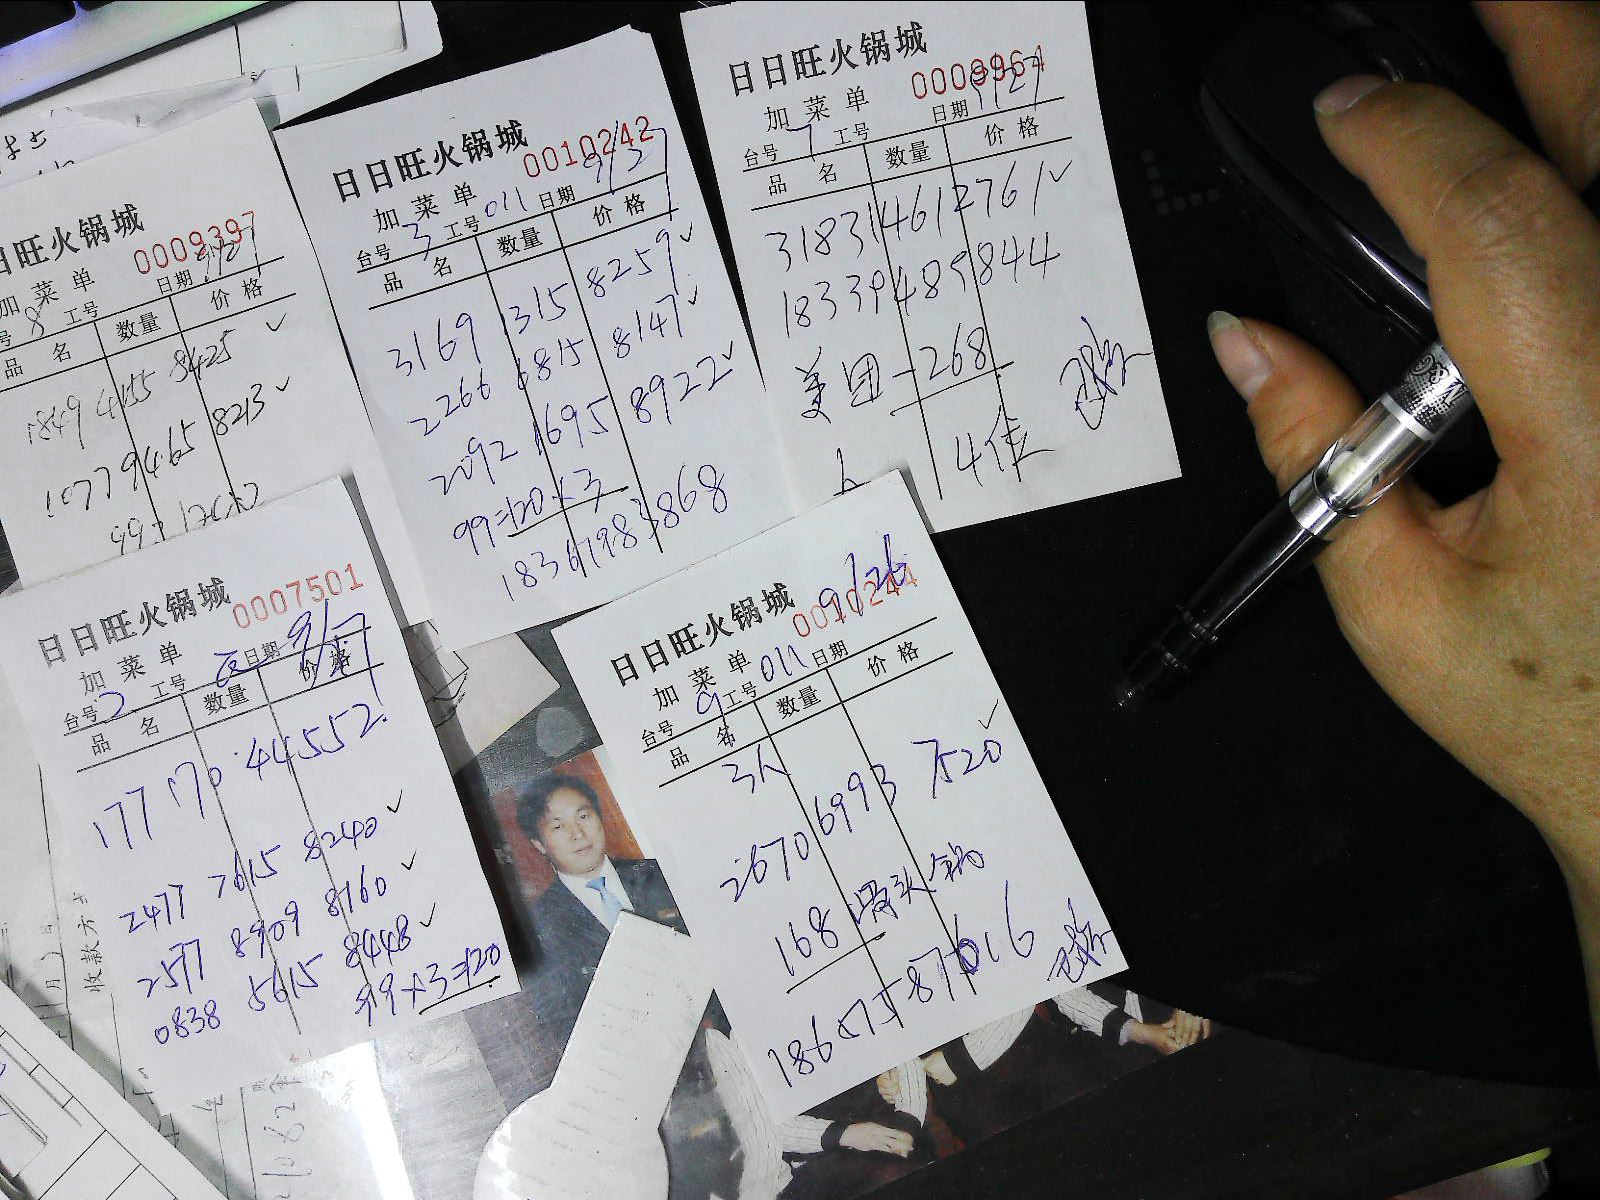 日旺火锅城
0009397
加菜单 日期 9/27
号 8 工号
品 名 数量 价格
1849 4155 8425 ✓
1077 9465 8213 ✓
日日旺火锅城
0010242
加菜单 日期
台号 3 工号 011
品 名 数量 价格
3169 1315 8259 ✓
2266 6815 8147 ✓
2092 1695 8922 ✓
99=120×3
18367983868
日日旺火锅城
0009964
加菜单 日期 9/27
台号 7 工号
品 名 数量 价格
318314612761 ✓
18339489844
美团-268
4佳
日日旺火锅城
0007501
加菜单 日期
台号 2 工号
品 名 数量 价格
177 170 44552
2477 7615 8240 ✓
2577 8909 8160 ✓
0838 5615 8448 ✓
99×3=120
日日旺火锅城
0010244
加菜单 日期 9/26
台号 9 工号 011
品 名 数量 价格
3人
2670 6993 7520 ✓
168 骨头锅
186 575 87616
收款方式